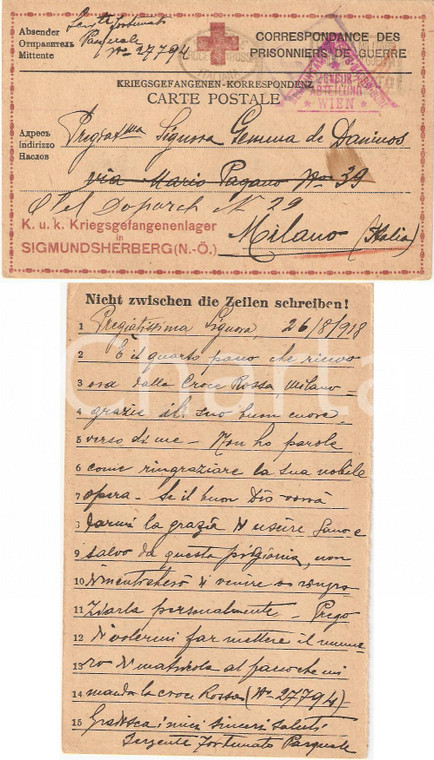 Absender
Отправитель
Mittente
Sente Fortunato
Pasquale
No 27794
CROCE ROSSA
ITALIANA
CORRESPONDANCE DES
PRISONNIERS DE GUERRE
ZENSUR
ABTEILUNG
WIEN
KRIEGSGEFANGENEN-KORRESPONDENZ
CARTE POSTALE
Адресъ
Indirizzo
Наслов
Preg.ma Signora Gemma de Daninos
via Mario Pagano No 39
N 29
K. u. k. Kriegsgefangenenlager
in
SIGMUNDSHERBERG (N.-Ö.)
Milano (Italia)
Nicht zwischen die Zeilen schreiben!
1 Pregiatissima Signora, 26/8/918
2 È il quarto pacco che ricevo
3 ora dalla Croce Rossa, Milano=
4 grazie il suo buon cuore
5 verso di me – Non ho parole
6 come ringraziare la sua nobile
7 opera – Se il buon Dio vorrà
8 darmi la grazia di uscire sano e
9 salvo da questa prigionia, non
10 di venire a ringra
11 ziarla personalmente – Prego
12 di volermi far mettere il nume
13 ro di matricola al pacco che mi
14 manda la croce Rossa (No 27794)
15 Gradisca i miei sinceri saluti
Sergente Fortunato Pasquale
Charta